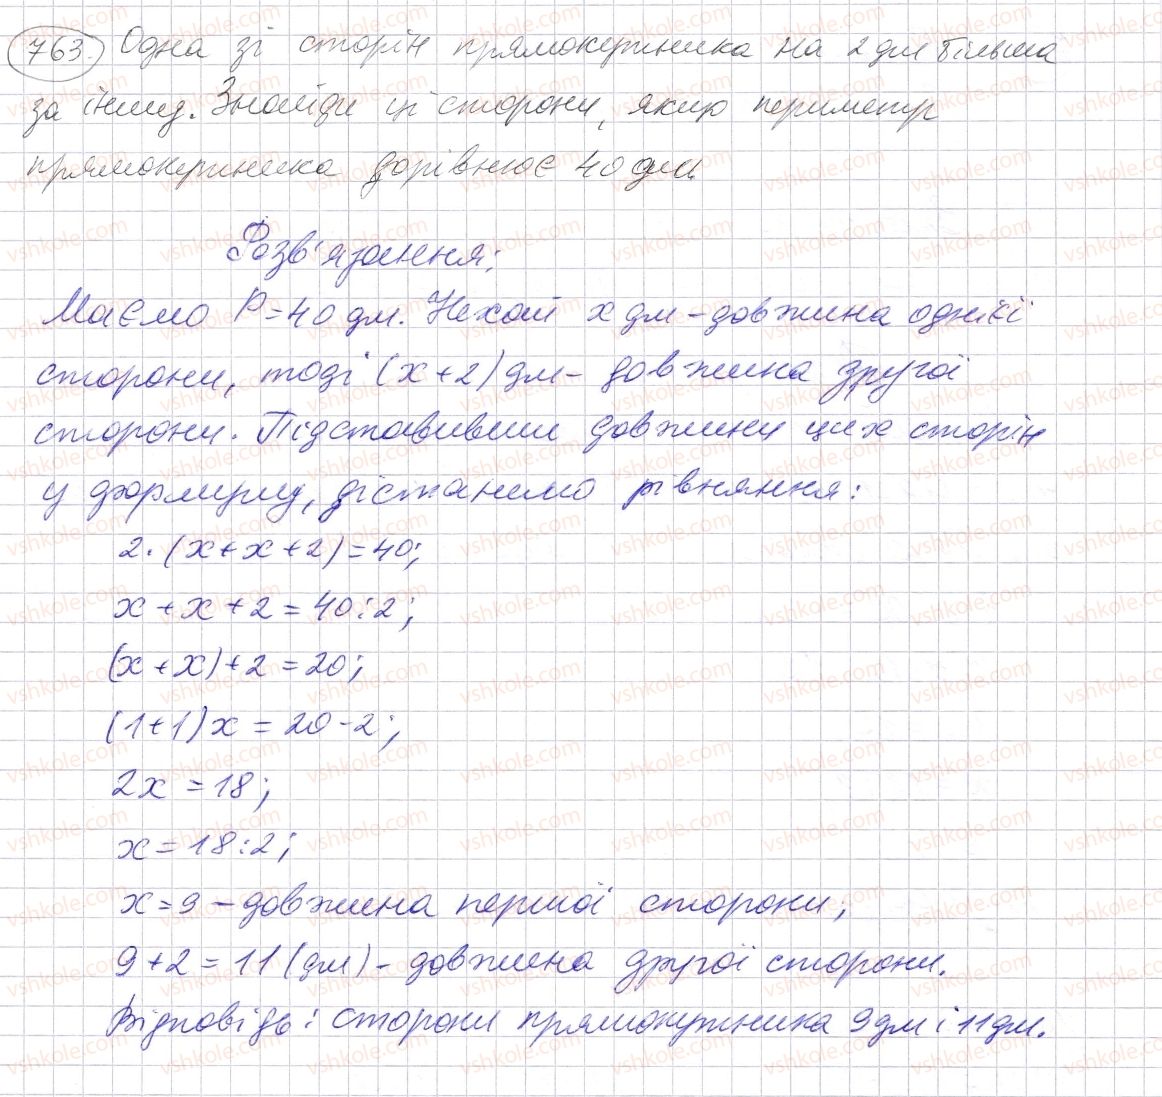 763. Одна зі сторін прямокутника на 2 дм більша
за іншу. Знайди ці сторони, якщо периметр
прямокутника дорівнює 40 дм.
Розв'язання:
Маємо P=40 дм. Нехай x дм – довжина однієї
сторони, тоді (x+2) дм – довжина другої
сторони. Підставивши довжини цих сторін
у формулу, дістанемо рівняння:
2·(x+x+2)=40;
x+x+2=40:2;
(x+x)+2=20;
(1+1)x=20-2;
2x=18;
x=18:2;
x=9 – довжина першої сторони;
9+2=11 (дм) – довжина другої сторони.
Відповідь: сторони прямокутника 9 дм і 11 дм.
vshkole.com